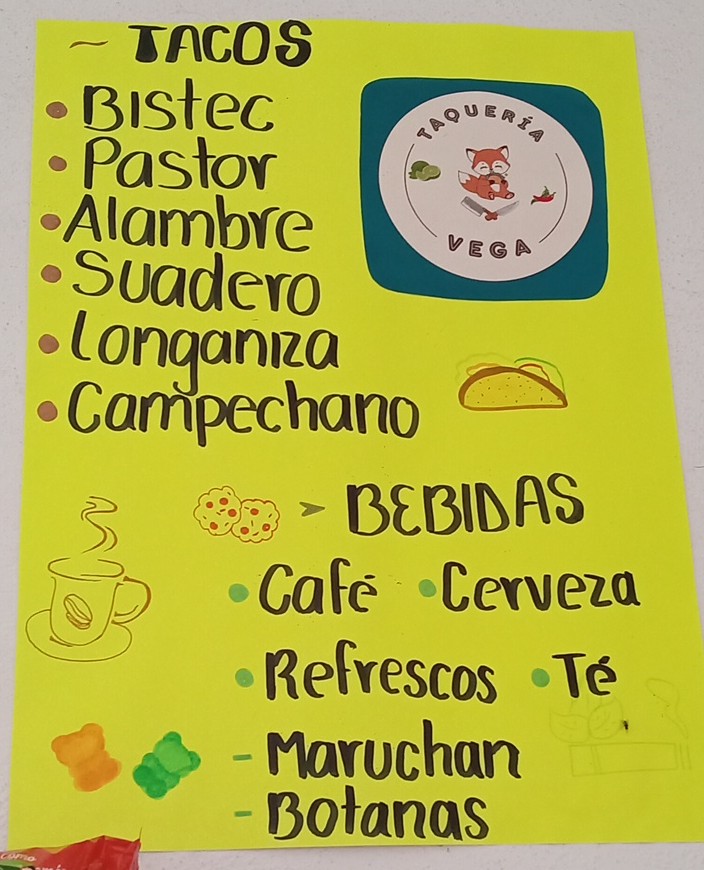 ~ TACOS
• Bistec
• Pastor
• Alambre
• Suadero
• Longaniza
• Campechano
TAQUERÍA
VEGA
> BEBIDAS
• Café • Cerveza
• Refrescos • Té
- Maruchan
- Botanas
como